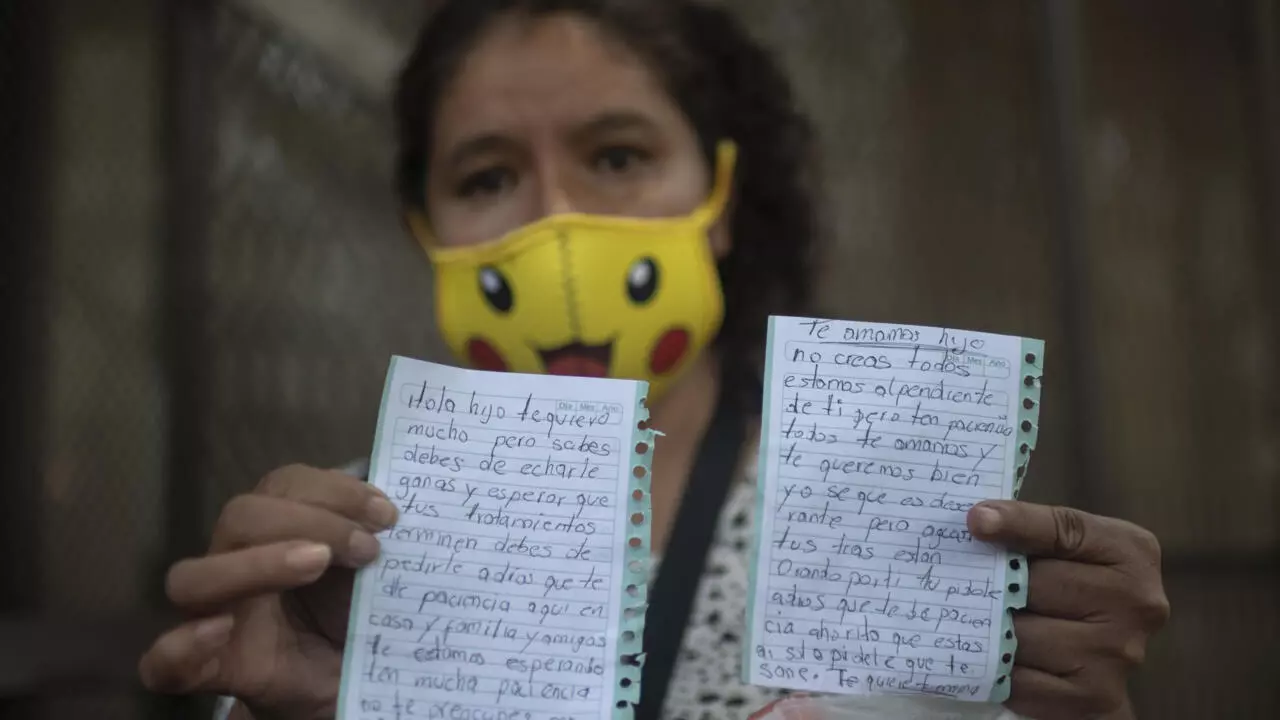 Hola hijo te quiero
Dia Mes Año
mucho pero sabes
debes de echarle
ganas y esperar que
tus tratamientos
terminen debes de
pedirle adios que te
de paciencia aqui en
casa y familia y amigos
te estamos esperando
ten mucha paciencia
no te preocupes
te amamos hijo
Dia Mes Año
no creas todos
estamos alpendiente
de ti pero ten paciencia
todos te amamos y
te queremos bien
yo se que es dese
rante pero aguan
tus tias estan
Orando por ti tu pidele
adios que te de pacien
cia ahorito que estas
ai solo pidele que te
sane. Te quiere tu mama